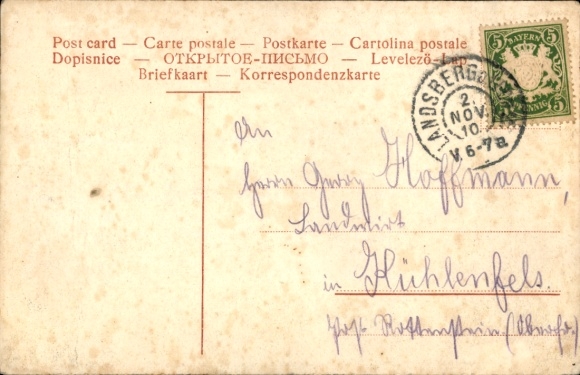 Post card — Carte postale — Postkarte — Cartolina postale
Dopisnice — ОТКРЫТОЕ-ПИСЬМО — Levelező-Lap
Briefkaart — Korrespondenzkarte
5 BAYERN 5
5 PFENNIG 5
LANDSBERG
2.
NOV.
10
V. 6-7
An
Herrn Georg Hoffmann,
Landwirt
in Kühlenfels.
Post Pottenstein (Oberfr.)